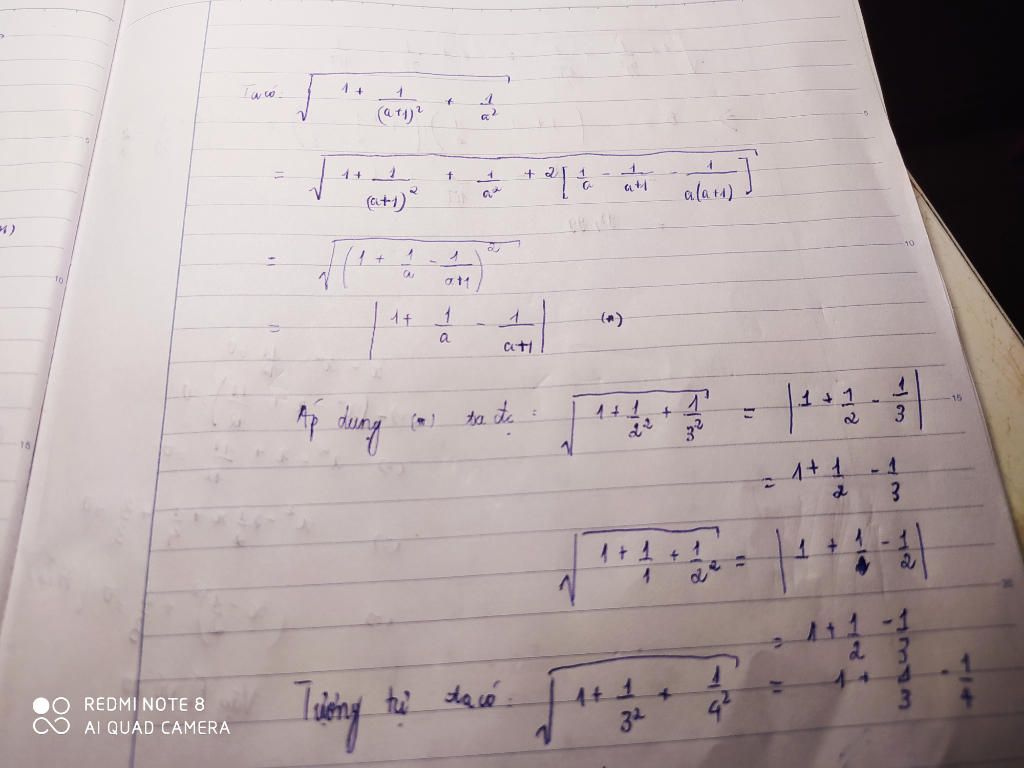 Ta có: √(1 + 1/(a+1)² + 1/a²)
= √(1 + 1/(a+1)² + 1/a² + 2[1/a - 1/(a+1) - 1/(a(a+1))])
= √((1 + 1/a - 1/(a+1))²)
= |1 + 1/a - 1/(a+1)| (*)
Áp dụng (*) ta đc: √(1 + 1/2² + 1/3²) = |1 + 1/2 - 1/3|
= 1 + 1/2 - 1/3
√(1 + 1/1 + 1/2²) = |1 + 1/1 - 1/2|
= 1 + 1/2 - 1/3
Tương tự ta có: √(1 + 1/3² + 1/4²) = 1 + 1/3 - 1/4
REDMI NOTE 8
AI QUAD CAMERA
5
10
15
10
15
20